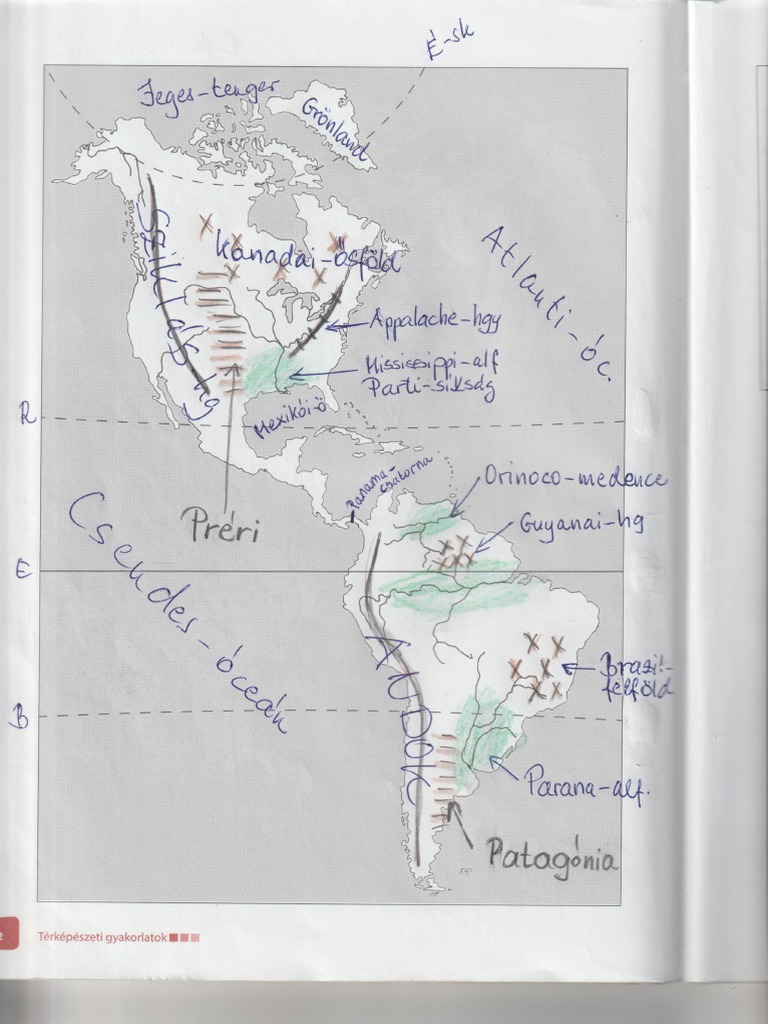 É-sk
Jeges-tenger
Grönland
Kanadai-ősföld
Sziklás-hg
Atlanti-óc.
Appalache-hgy
Mississippi-alf
Parti-síkság
R
Mexikói-ö
Panama-
csatorna
Orinoco-medence
Préri
Guyanai-hg
Csendes-óceán
E
ANDOK
Brazil-
felföld
B
Parana-alf.
Patagónia
2
Térképészeti gyakorlatok